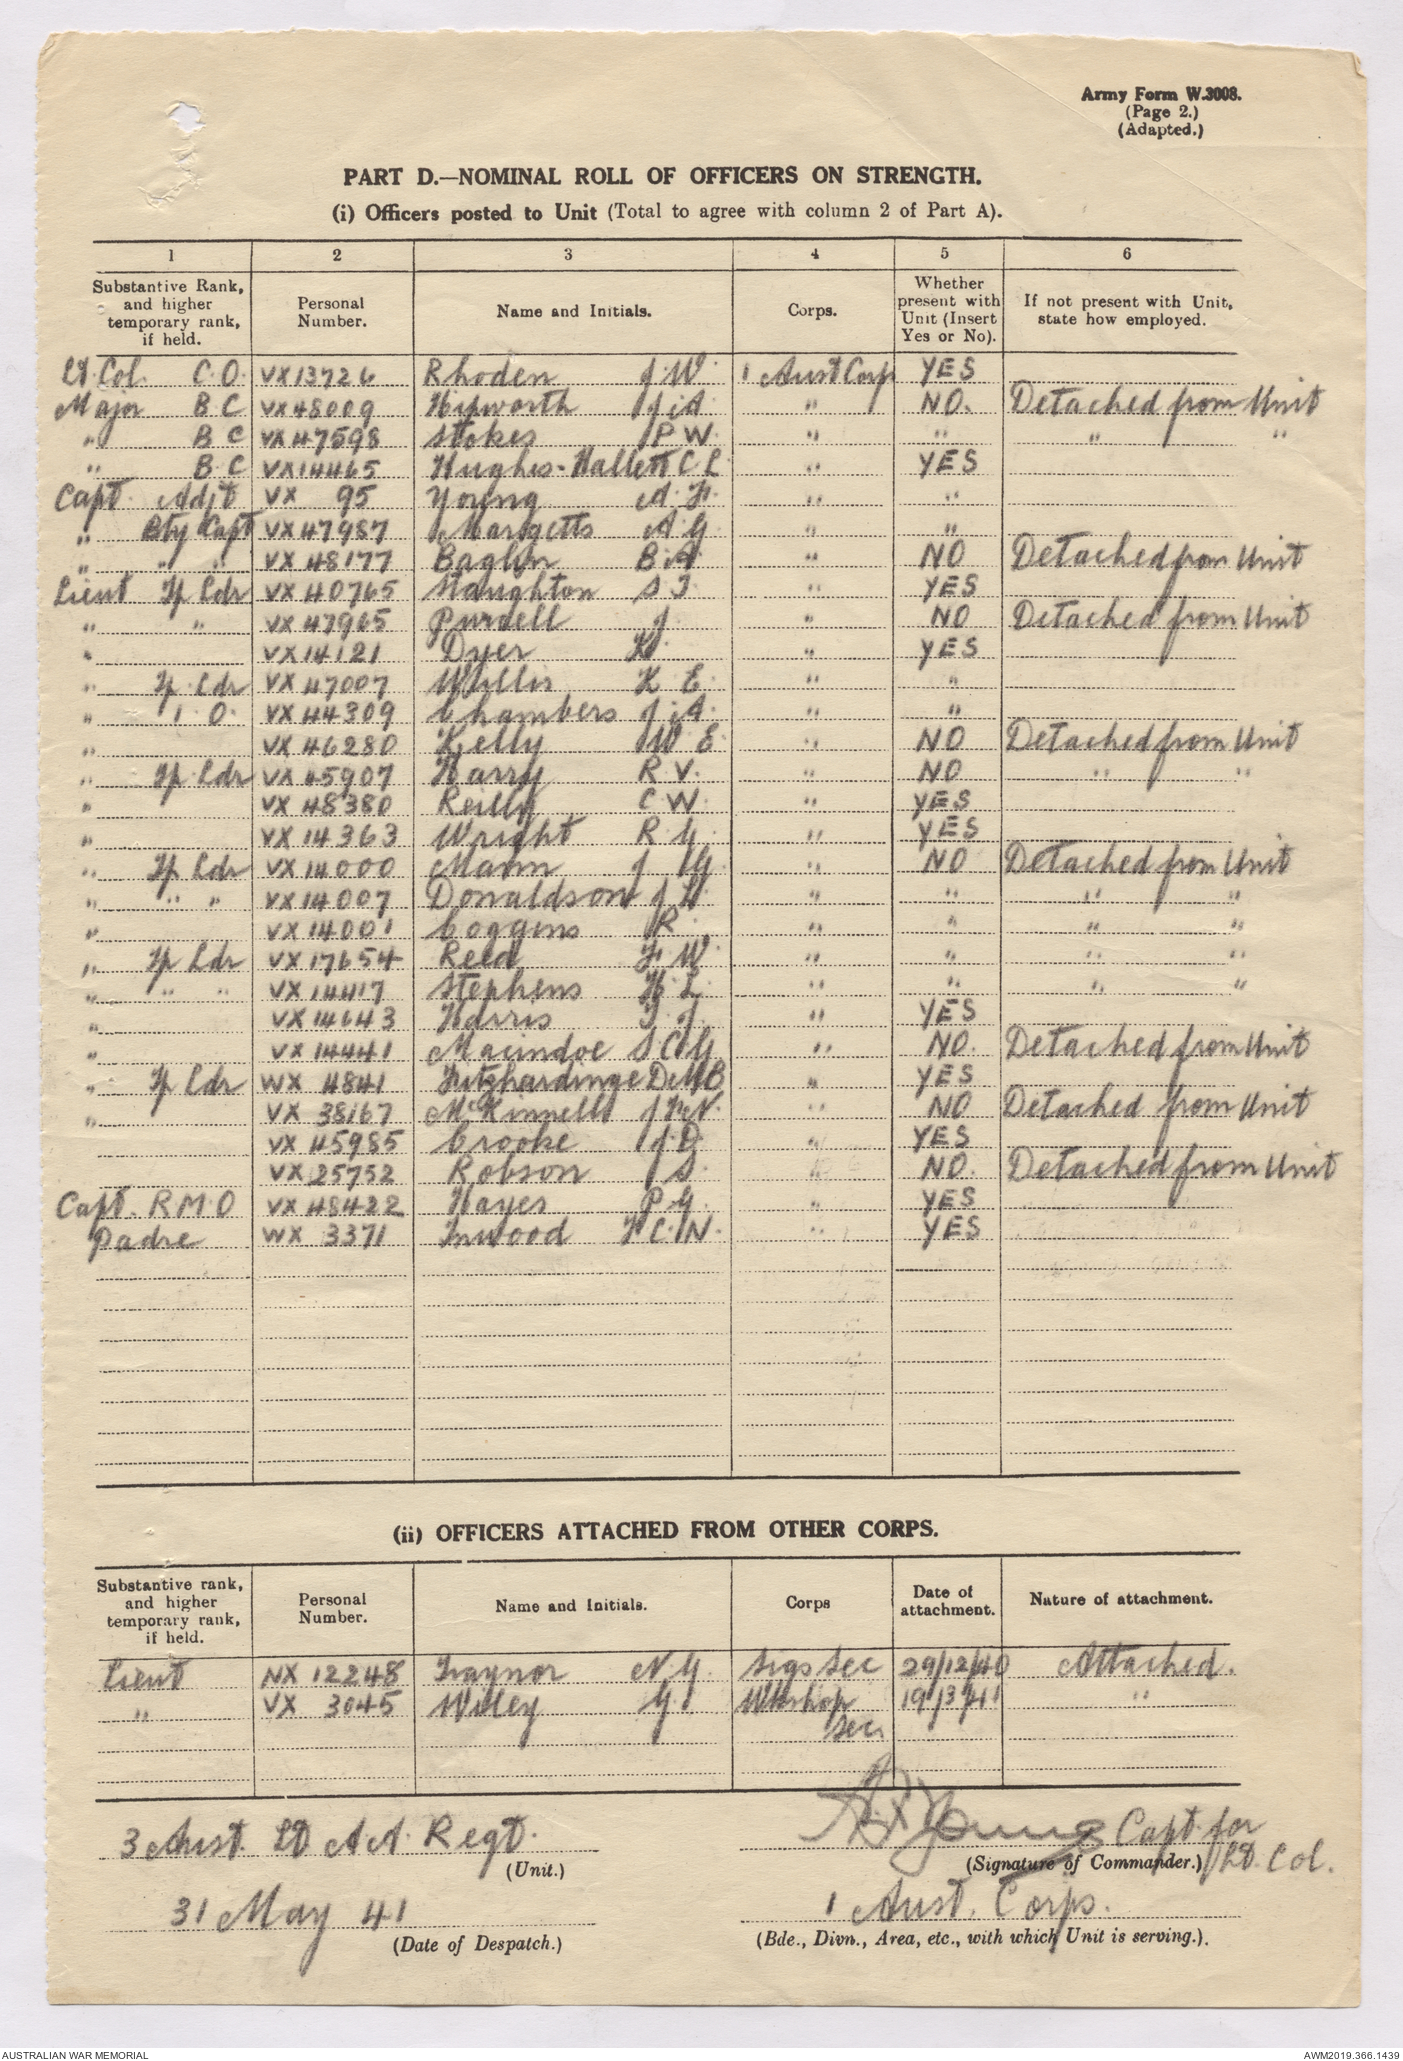 Army Form W.3008.
(Page 2.)
(Adapted.)
PART D.—NOMINAL ROLL OF OFFICERS ON STRENGTH.
(i) Officers posted to Unit (Total to agree with column 2 of Part A).
1 2 3 4 5 6
Substantive Rank, and higher temporary rank, if held. Personal Number. Name and Initials. Corps. Whether present with Unit (Insert Yes or No). If not present with Unit, state how employed.
Lt. Col. C.O. VX13726 Rhoden J.W. 1 Aust Corp YES
Major B C VX48009 Hipworth J.A. " NO. Detached from Unit
" B C VX47598 Stokes P W. " " " "
" B C VX14465 Hughes-Hallett C L " YES
Capt. Adjt VX 95 Young A. F. " "
" Bty Capt VX47987 Margetts A G " "
" " " VX 48177 Baglin B.A. " NO Detached from Unit
Lieut Tp Ldr VX 40765 Naughton S J. " YES
" " VX 47965 Purdell J " NO Detached from Unit
" VX14121 Dyer K. " YES
" Tp. Ldr VX 47007 Willis K E. " "
" I. O. VX 44309 Chambers J.A. " "
" VX 46280 Kelly W E. " NO Detached from Unit
" Tp. Ldr VX 45907 Harry R V. " NO " "
" VX 48380 Reilly C W. " YES
" VX 14363 Wright R G. " YES
" Tp Ldr VX 14000 Mann J G. " NO Detached from Unit
" " " VX 14007 Donaldson J L. " " " "
" VX 14001 Coggins R. " " " "
" Tp Ldr VX 17654 Reed F W. " " " "
" " " VX 14417 Stephens H. L. " " " "
" VX 14643 Harris T. J. " YES
" VX 14441 Macindoe S C G " NO. Detached from Unit
" Tp Ldr WX 4841 Fitzhardinge D M B " YES
" VX 38167 McKinnell J F N. " NO Detached from Unit
VX 45985 Crooke J. D. " YES
VX 25752 Robson J S. NO. Detached from Unit
Capt. R M O VX 48422 Hayes P G. " YES
Padre WX 3371 Inwood F C. N. " YES
(ii) OFFICERS ATTACHED FROM OTHER CORPS.
Substantive rank, and higher temporary rank, if held. Personal Number. Name and Initials. Corps Date of attachment. Nature of attachment.
Lieut NX 12248 Traynor N G. Sigs Sec 29/12/40 Attached.
" VX 3045 Wiley G. Wkshop 19/3/41 "
Sec.
3 Aust. Lt A A. Regt.
(Unit.)
A F Young Capt. for
(Signature of Commander.) Lt. Col.
31 May 41
(Date of Despatch.)
1 Aust. Corps.
(Bde., Divn., Area, etc., with which Unit is serving.).
AUSTRALIAN WAR MEMORIAL
AWM2019.366.1439